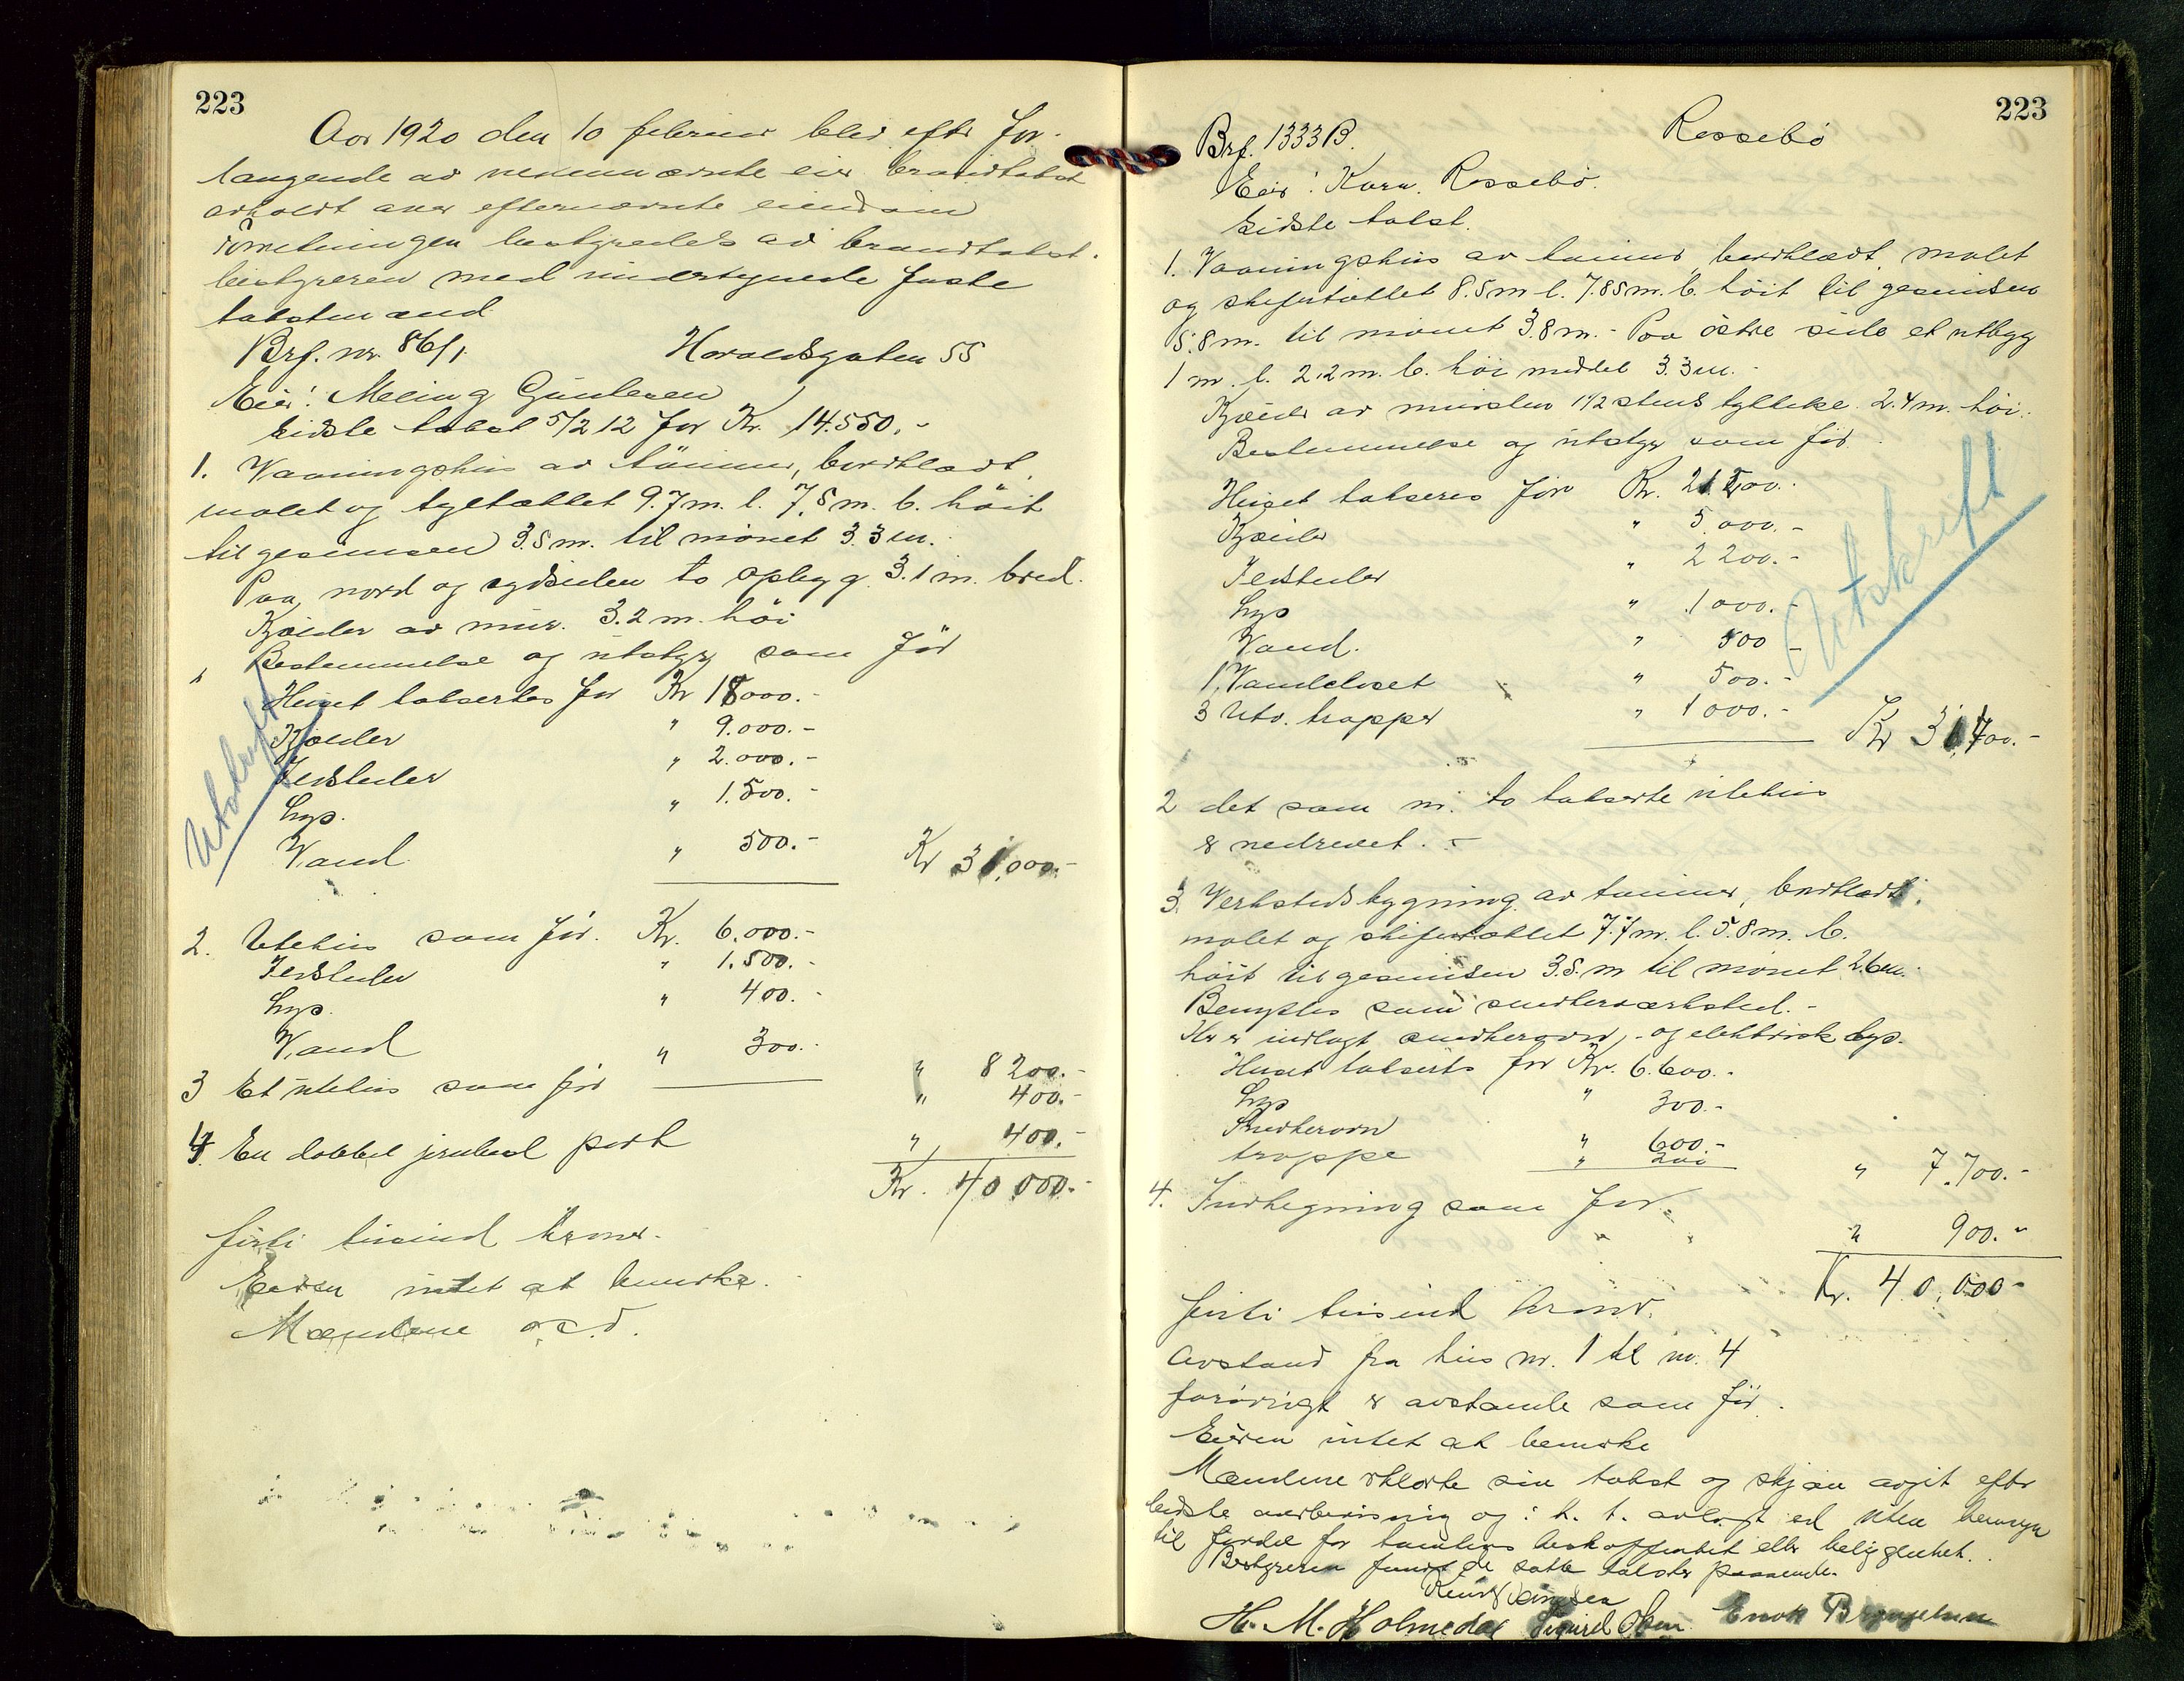 223
Aar 1920 den 10 februar blev efter for-
langende av nedennævnte eier brandtakst
avholdt over efternævnte eiendom
Forretningen bestyredes av brandtakst-
bestyreren med undertegnede faste
takstmænd
Brf. nr. 86/1 Haraldsgaten 55
Eier: Meling Gundersen
Sidste takst 5/2 12 for Kr. 14.550.-
1. Vaaningshus av tømmer, bordklædt,
malet og tegltækket 9.7 m. l. 7.5 m. b. høit
til gesimsen 3.5 m. til mønet 3.3 m.
Paa nord og sydsiden to opbygg 3.1 m. bred.
Kjælder av mur. 3.2 m. høi
Bestemmelse og utstyr som før
Huset takseres for Kr 18000.-
Kjælder " 9.000.-
Ildsteder " 2.000.-
Lys. " 1.500.-
Vand " 500.- Kr 31,000.-
Utskrift
2. Utehus som før. Kr. 6.000.-
Ildsteder " 1.500.-
Lys. " 400.-
Vand " 300.- " 8200.-
3 Et utehus som før " 400.-
4. En dobbel jernbesl port " 400.-
Kr. 40 000.-
firti tusind kroner.
Eieren intet at bemerke.
Mændene o.s.v.
223
Brf. 1333B. Rossebø
Eier: Karn. Rossebø.
Sidste takst.
1. Vaaningshus av tømmer, bordklædt, malet
og skifertækket 8.5 m l. 7.85 m. b. høit til gesimsen
5.8 m. til mønet 3.8 m. - Paa østre side et utbygg
1 m. l. 2.2 m. b. høi middel 3.3 m. -
Kjælder av mursten 1 1/2 stens tykkelse 2.4 m. høi.
Bestemmelse og utstyr som før.
Huset takseres for Kr. 21 500.-
Kjælder " 5.000.-
Ildsteder " 2 200.-
Lys " 1000.-
Vand. " 500 -
1 Vandcloset " 500.-
3 Utv. trapper " 1000.- Kr 31700.-
Utskrift
2 det som nr. to takserte utehus
er nedrevet. -
3. Verkstedsbygning av tømmer, bordklædt,
malet og skifertækket 7.7 m. l. 5.8 m. b.
høit til gesimsen 3.5. m til mønet 2.6 m.
Benyttes som smedeverksted. -
Her er indlagt smedkeravn, - og elektrisk lys.
Huset takserts for Kr. 6.600.-
Lys " 300.-
Smedkeravn " 600.-
trappe " 200 " 7.700.-
4. Indhegning som før. " 900.-
Kr. 40,000-
firti tusind kroner.
Avstand fra hus nr. 1 til nr. 4
forøvrigt er avstande som før.
Eieren intet at bemerke
Mændene erklærte sin takst og skjøn avgit efter
bedste overbevisning og i h. t. avlagt ed uten hensyn
til fordel for tomtens beskaffenhet eller beliggenhet.
Bestyreren fandt de satte takster passende.
H. M. Holmedal Sigurd Olsen Enok Bryngelsen